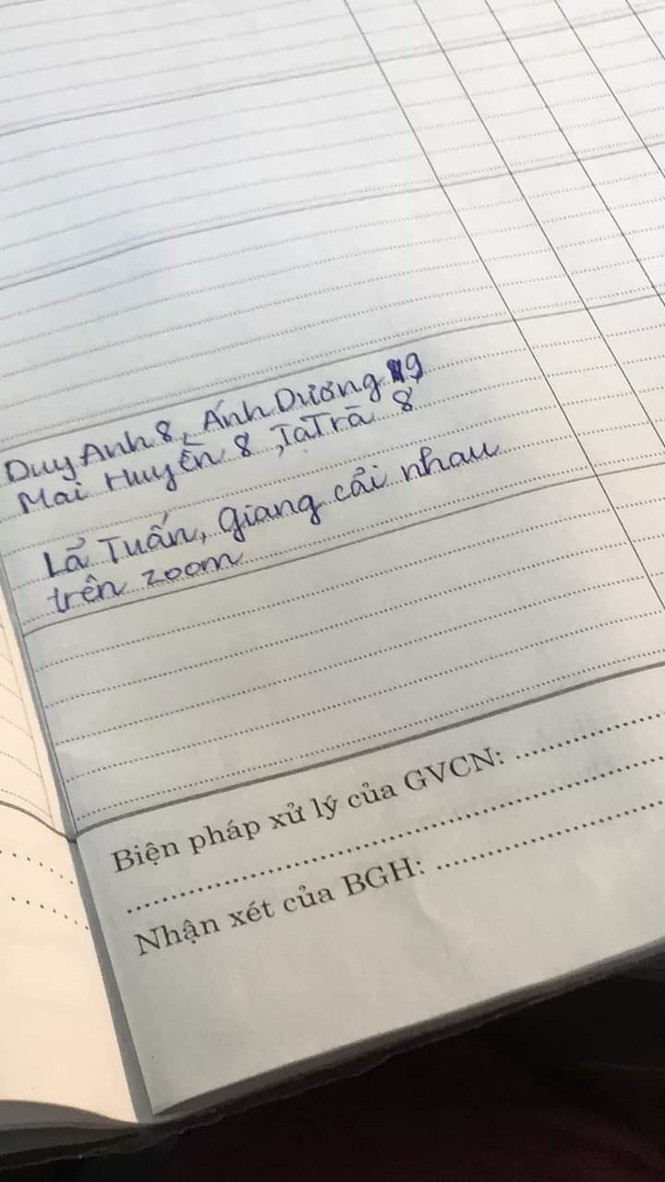 Duy Anh 8, Ánh Dương 9
Mai Huyền 8, Tạ Trà 8
Lã Tuấn, Giang cãi nhau
trên zoom
Biện pháp xử lý của GVCN:
Nhận xét của BGH: